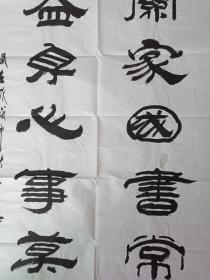 關家國書常
益身心事莫